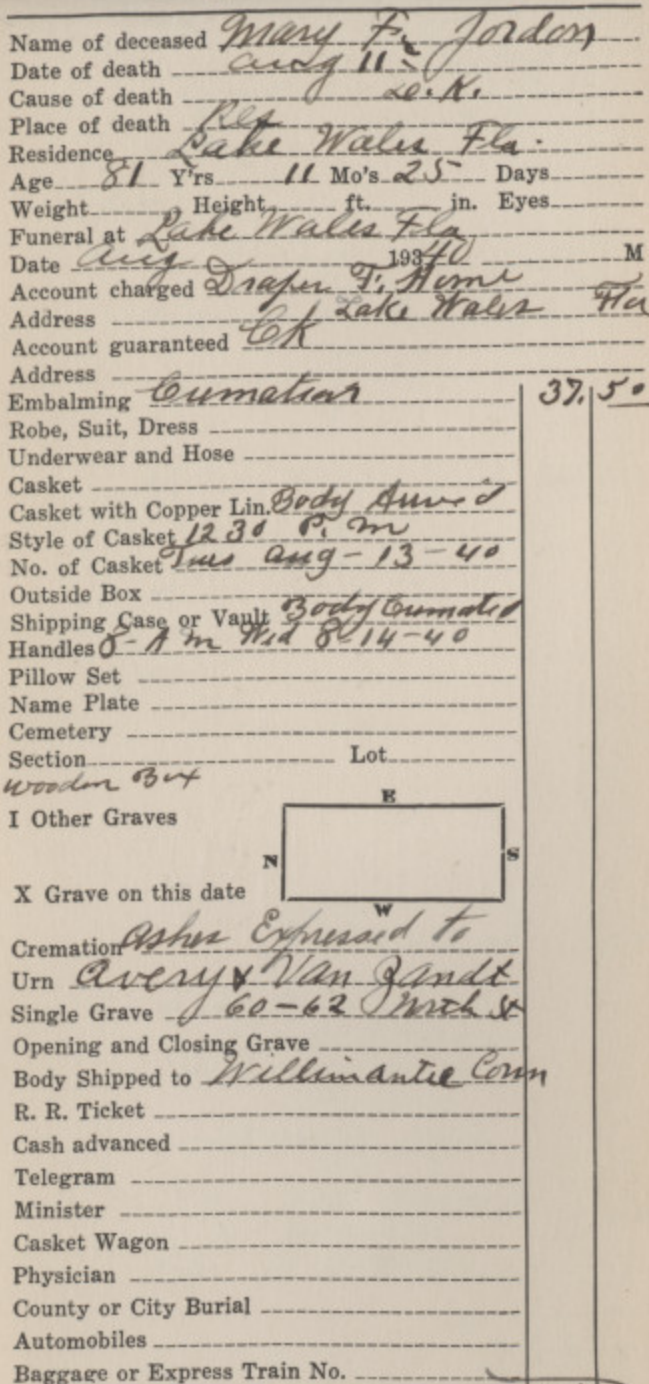 Name of deceased Mary F. Jordon
Date of death Aug 11-
Cause of death D.K.
Place of death Res
Residence Lake Wales Fla.
Age 81 Y'rs 11 Mo's 25 Days
Weight Height ft. in. Eyes
Funeral at Lake Wales Fla
Date Aug 19340 M
Account charged Draper F. Home
Address Lake Wales Fla
Account guaranteed CK
Address
Embalming Cremation 37.50
Robe, Suit, Dress
Underwear and Hose
Casket
Casket with Copper Lin. Body Arrived
Style of Casket 1230 P. m
No. of Casket Tues Aug-13-40
Outside Box
Shipping Case or Vault Body Cremated
Handles 8-A m Wed 8-14-40
Pillow Set
Name Plate
Cemetery
Section Lot
wooden Box
E
I Other Graves
N S
X Grave on this date
W
Cremation Ashes Expressed to
Urn Avery & Van Zandt
Single Grave 60-62 North St
Opening and Closing Grave
Body Shipped to Willimantic Conn
R. R. Ticket
Cash advanced
Telegram
Minister
Casket Wagon
Physician
County or City Burial
Automobiles
Baggage or Express Train No.